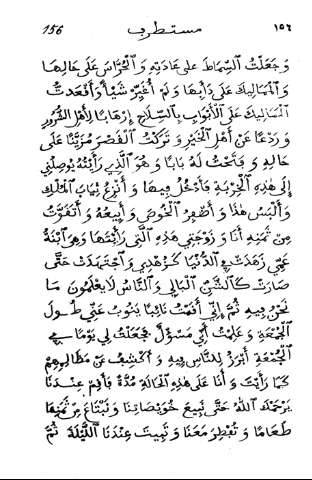 156 مستطرف ١٥٦
وَجَعَلْتُ السِّمَاطَ عَلى عَادَتِهِ وَالْحُرَّاسَ عَلَى حَالِهَا
وَالْمَمَالِيكَ عَلَى دَأْبِهَا وَلَمْ أُغَيِّرْ شَيْأً وَأَقْعَدتُّ
الْمَمَالِيكَ عَلَى الْأَبْوَابِ بِالسِّلَاحِ إِرْهَابًا لِأَهْلِ الشُّرُورِ
وَرَدْعًا عَنْ أَهْلِ الْخَيْرِ وَتَرَكْتُ الْقَصْرَ مُزَيَّنًا عَلَى
حَالِهِ وَفَتَحْتُ لَهُ بَابًا وَهُوَ الَّذِي رَأَيْتَهُ يُوصِلُنِي
إِلَى هَذِهِ الْخِرْبَةِ فَأَدْخُلُ فِيهَا وَأَنْزِعُ ثِيَابَ الْمُلْكِ
وَأَلْبَسُ هَذَا وَأَضْفِرُ الْخُوصَ وَأَبِيعُهُ وَأَتَقَوَّتُ
مِنْ ثَمَنِهِ أَنَا وَزَوْجَتِي هَذِهِ الَّتِي رَأَيْتَهَا وَهِيَ ابْنَةُ
عَمِّي زَهَدَتْ فِي الدُّنْيَا كَزُهْدِي وَاجْتَهَدَتْ حَتَّى
صَارَتْ كَالشَّنِّ الْبَالِي وَالنَّاسُ لَا يَعْلَمُونَ مَا
نَحْنُ فِيهِ ثُمَّ إِنِّي أَقَمْتُ نَائِبًا يَنُوبُ عَنِّي طُولَ
الْجُمْعَةِ وَعَلِمْتُ أَنِّي مَسْؤُلٌ فَجَعَلْتُ لِي يَوْمًا فِي
الْجُمُعَةِ أَبْرُزُ لِلنَّاسِ فِيهِ وَأَكْشِفُ عَنْ مَظَالِمِهِمْ
كَمَا رَأَيْتَ وَأَنَا عَلَى هَذِهِ الْحَالَةِ مُدَّةً فَأَقِمْ عِنْدَنَا
يَرْحَمُكَ اللَّهُ حَتَّى نَبِيعَ خُوَيْصَاتِنَا وَنَبْتَاعَ مِنْ ثَمَنِهَا
طَعَامًا وَتُفْطِرَ مَعَنَا وَتَبِيتَ عِنْدَنَا اللَّيْلَةَ ثُمَّ